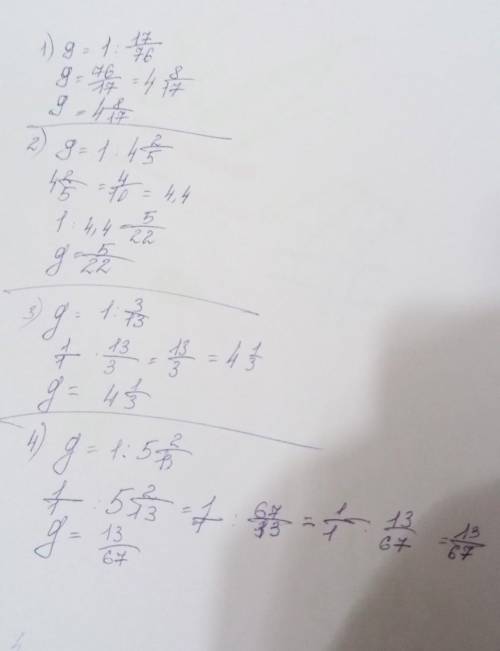 1) y = 1 : 17/76
y = 76/17 = 4 8/17
y = 4 8/17
2) y = 1 : 4 2/5
4 2/5 = 4/10 = 4,4
1 : 4,4 = 5/22
y = 5/22
3) y = 1 : 3/13
1/1 · 13/3 = 13/3 = 4 1/3
y = 4 1/3
4) y = 1 : 5 2/13
1/1 : 5 2/13 = 1/1 : 67/13 = 1/1 · 13/67 = 13/67
y = 13/67